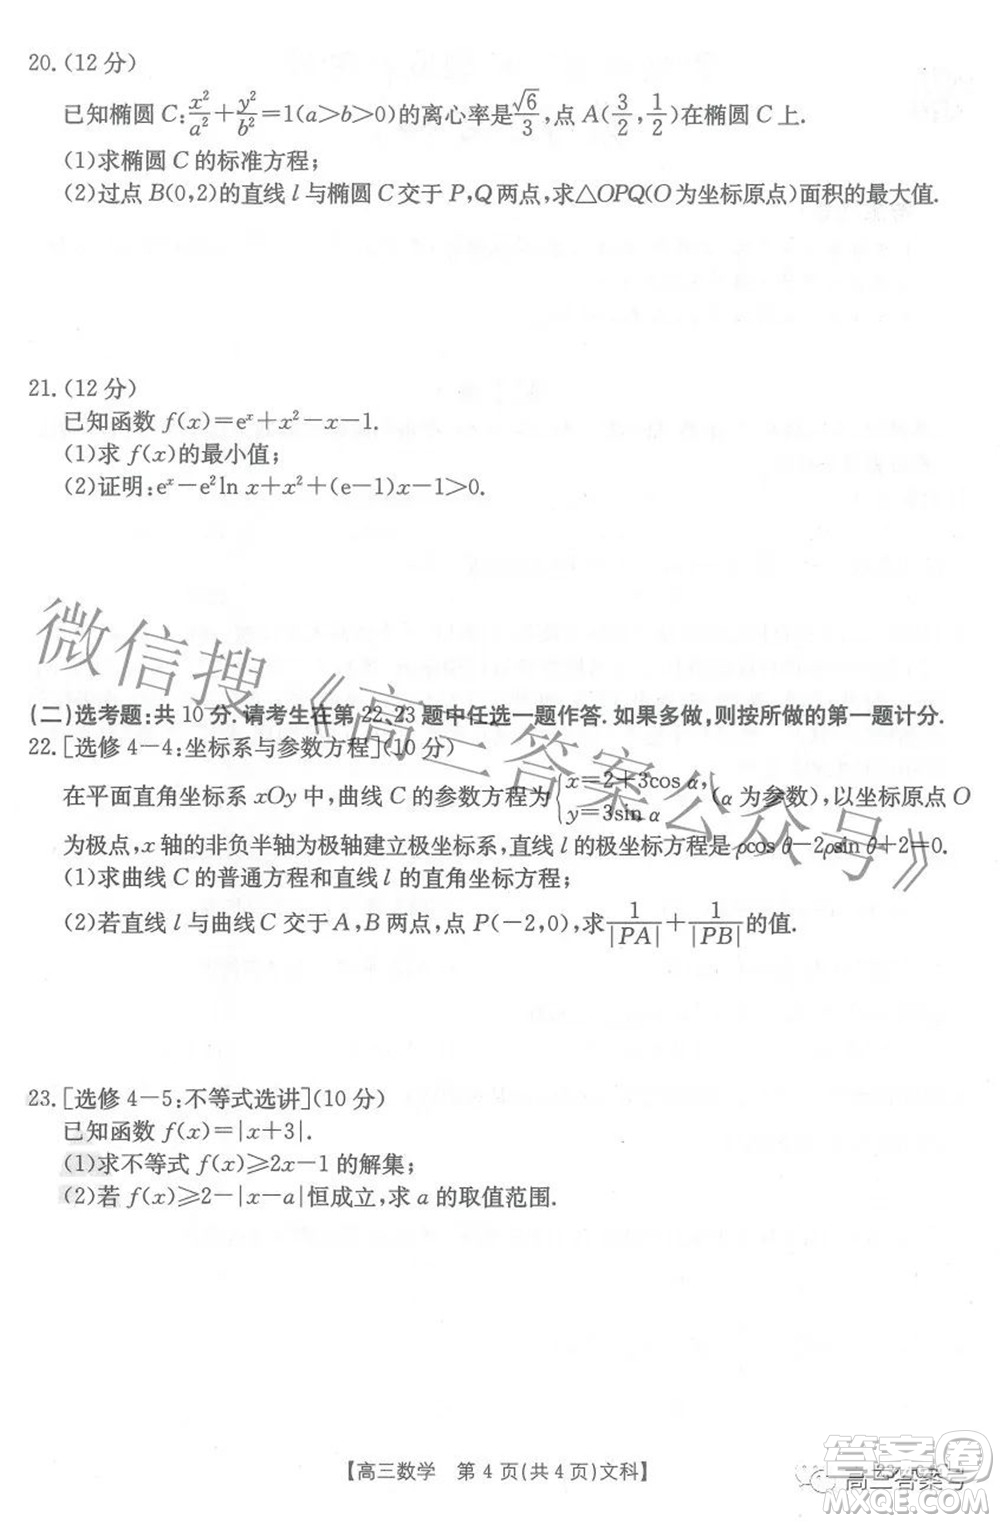 20.(12 分)
已知椭圆 C:x²/a²+y²/b²=1(a>b>0)的离心率是√6/3,点 A(3/2,1/2)在椭圆 C 上.
(1)求椭圆 C 的标准方程;
(2)过点 B(0,2)的直线 l 与椭圆 C 交于 P,Q 两点,求△OPQ(O 为坐标原点)面积的最大值.
21.(12 分)
已知函数 f(x)=eˣ+x²-x-1.
(1)求 f(x)的最小值;
(2)证明:eˣ-e²ln x+x²+(e-1)x-1>0.
(二)选考题:共 10 分.请考生在第 22,23 题中任选一题作答.如果多做,则按所做的第一题计分.
22.[选修 4-4:坐标系与参数方程](10 分)
在平面直角坐标系 xOy 中,曲线 C 的参数方程为{x=2+3cos α, y=3sin α (α 为参数),以坐标原点 O
为极点,x 轴的非负半轴为极轴建立极坐标系,直线 l 的极坐标方程是 ρcos θ-2ρsin θ+2=0.
(1)求曲线 C 的普通方程和直线 l 的直角坐标方程;
(2)若直线 l 与曲线 C 交于 A,B 两点,点 P(-2,0),求1/|PA|+1/|PB|的值.
23.[选修 4-5:不等式选讲](10 分)
已知函数 f(x)=|x+3|.
(1)求不等式 f(x)≥2x-1 的解集;
(2)若 f(x)≥2-|x-a|恒成立,求 a 的取值范围.
微信搜《高三答案公众号》
【高三数学 第 4 页(共 4 页)文科】
高三答案号
答案圈
MXQE.COM